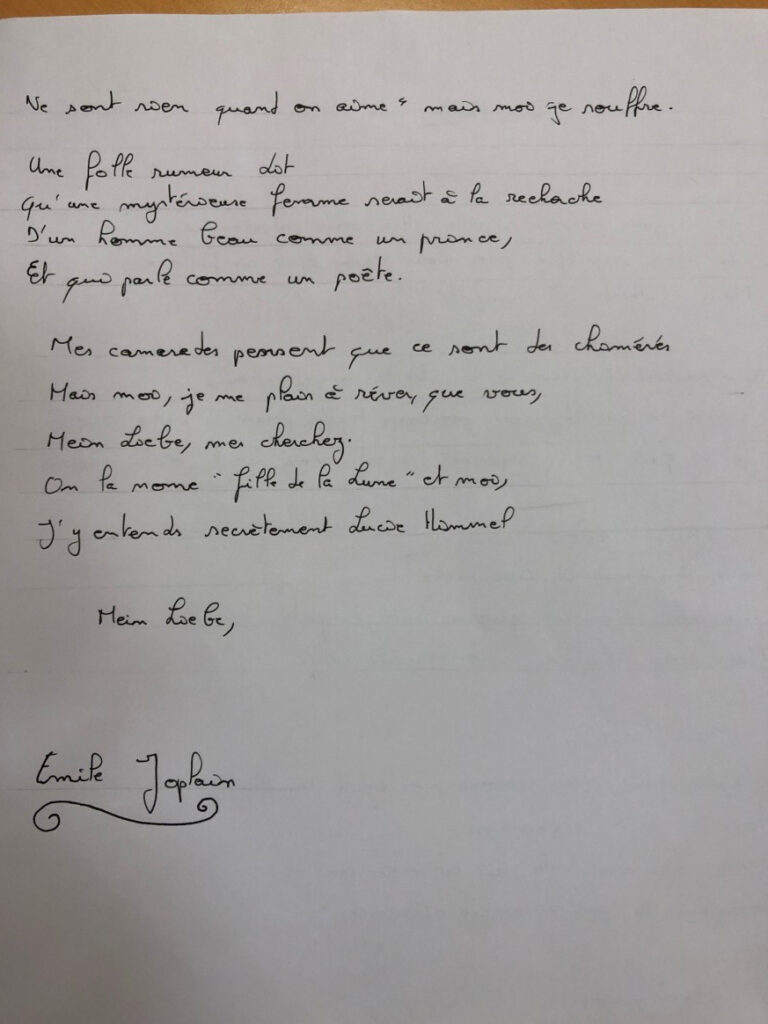 Ne sont rien quand on aime " mais moi je souffre.
Une folle rumeur dit
Qu'une mystérieuse femme serait à la recherche
D'un homme beau comme un prince,
Et qui parle comme un poète.
Mes camarades pensent que ce sont des chimères
Mais moi, je me plais à rêver, que vous,
Mein Liebe, me cherchez.
On la nome "fille de la Lune" et moi,
J'y entends secrètement Lucie Himmel
Mein Liebe,
Émile Joplain